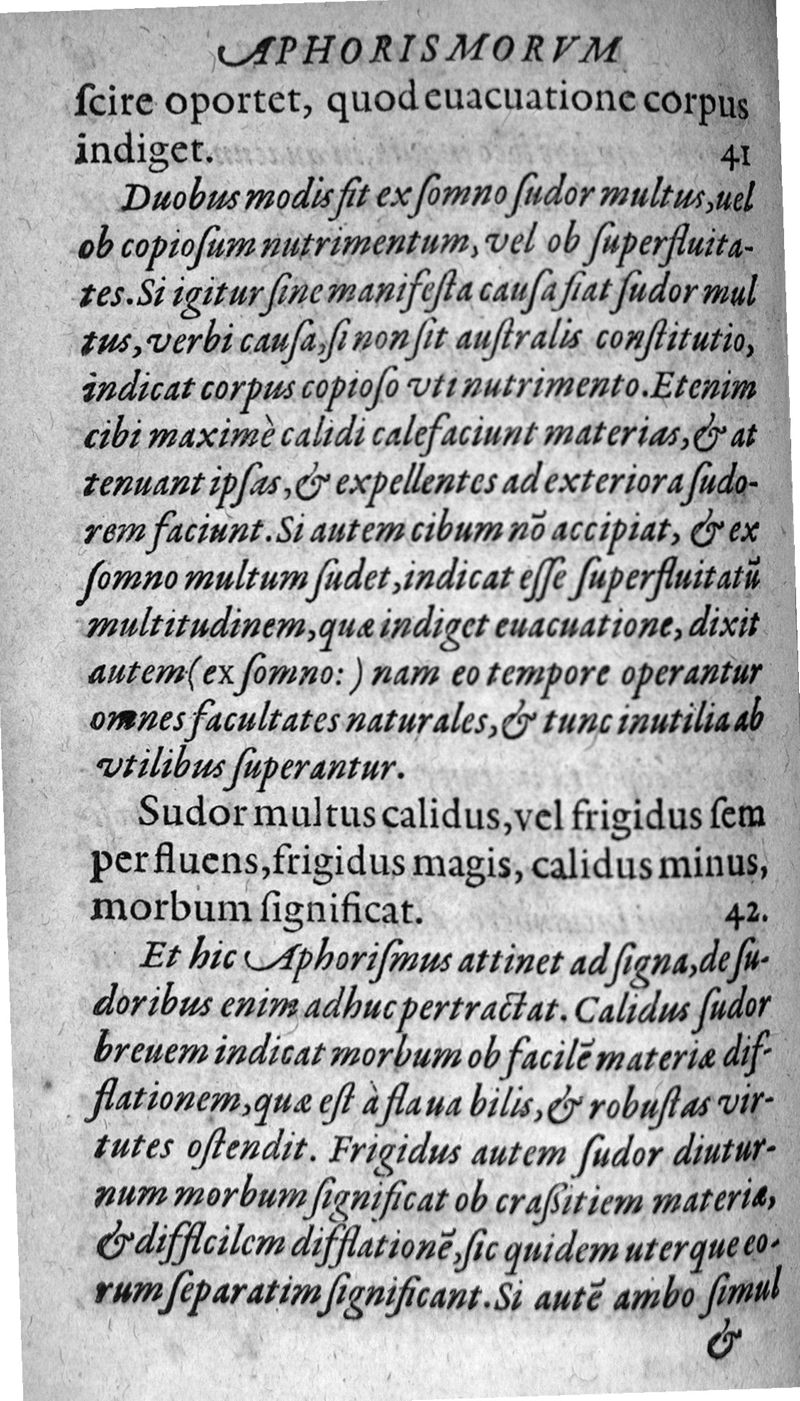 APHORISMORVM
ſcire oportet, quod euacuatione corpus
indiget. 41
Duobus modis fit ex ſomno ſudor multus, uel
ob copioſum nutrimentum, vel ob ſuperfluita-
tes. Si igitur ſine manifeſta cauſa fiat ſudor mul
tus, verbi cauſa, ſi non ſit auſtralis conſtitutio,
indicat corpus copioſo vti nutrimento. Etenim
cibi maximè calidi calefaciunt materias, & at
tenuant ipſas, & expellentes ad exteriora ſudo-
rem faciunt. Si autem cibum nō accipiat, & ex
ſomno multum ſudet, indicat eſſe ſuperfluitatū
multitudinem, quæ indiget euacuatione, dixit
autem (ex ſomno:) nam eo tempore operantur
omnes facultates naturales, & tunc inutilia ab
vtilibus ſuperantur.
Sudor multus calidus, vel frigidus ſem
per fluens, frigidus magis, calidus minus,
morbum ſignificat. 42.
Et hic Aphoriſmus attinet ad ſigna, de ſu-
doribus enim adhuc pertractat. Calidus ſudor
breuem indicat morbum ob facilē materiæ diſ-
flationem, quæ eſt à flaua bilis, & robuſtas vir-
tutes oſtendit. Frigidus autem ſudor diutur-
num morbum ſignificat ob craßitiem materiæ,
& difflcilem difflationē, ſic quidem uterque eo-
rum ſeparatim ſignificant. Si autē ambo ſimul
&